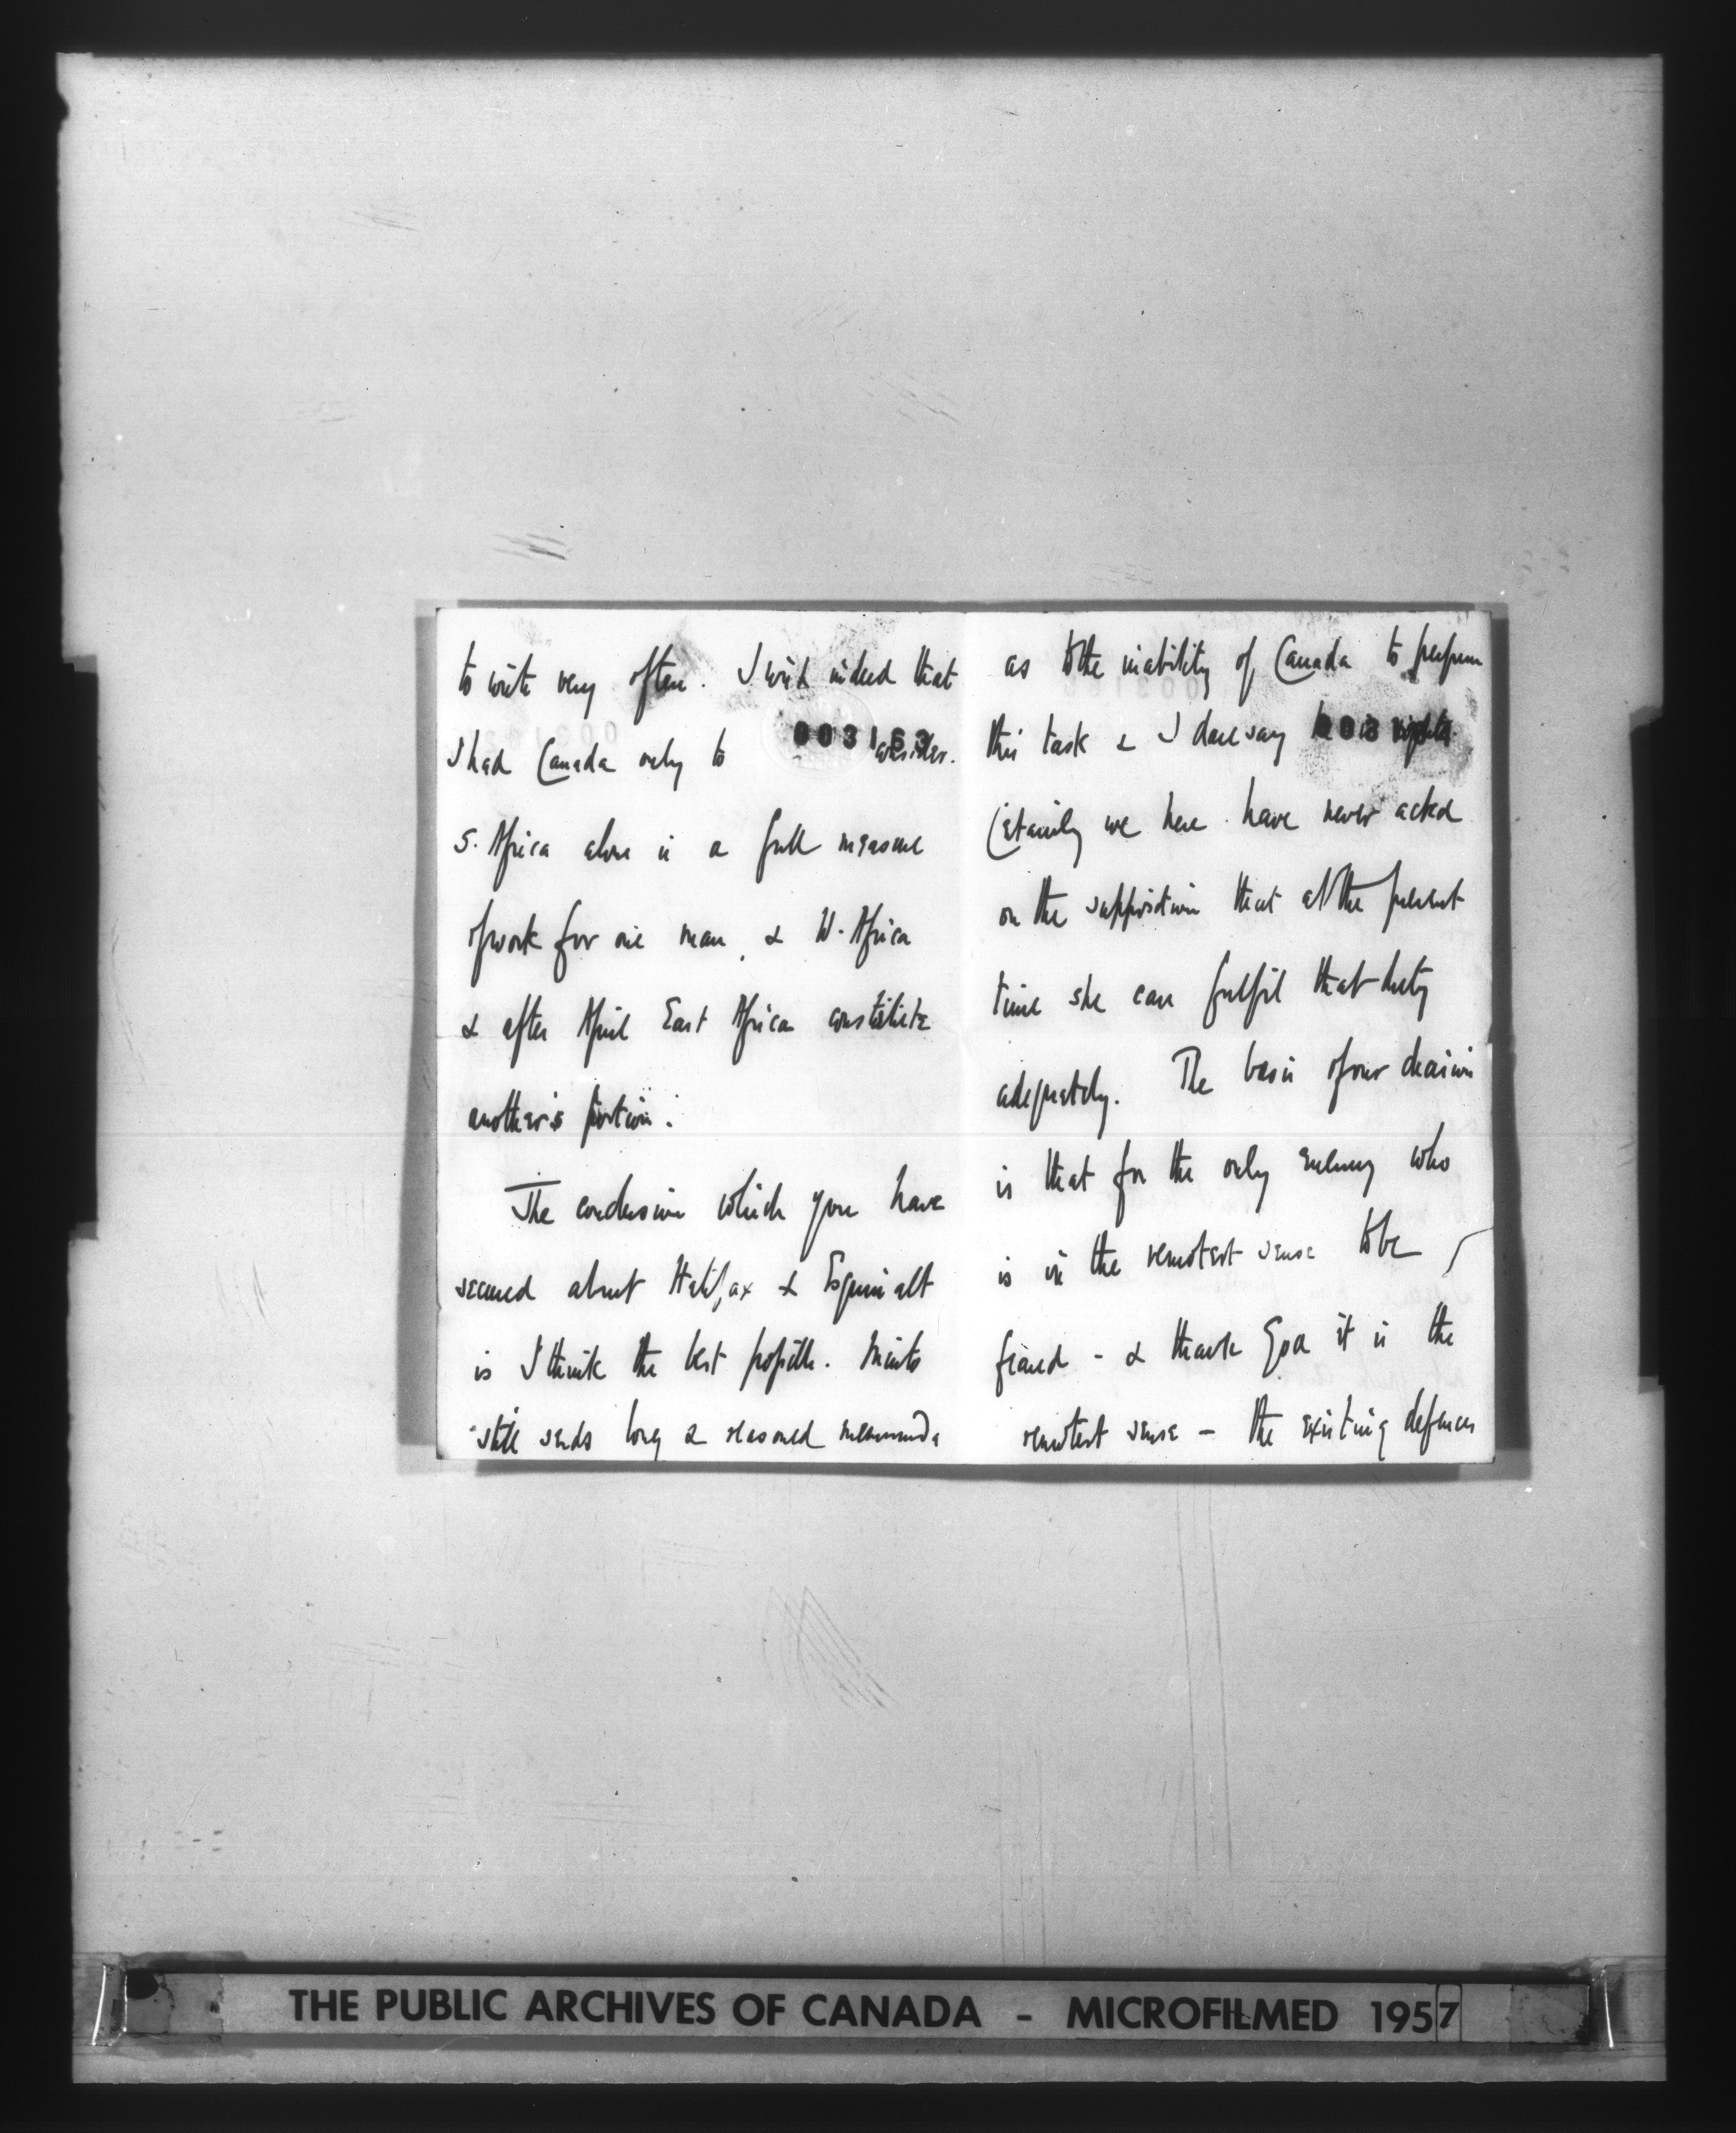 to write very often. I wish indeed that
I had Canada only to consider.
003163
S. Africa alone is a full measure
of work for one man, & W. Africa
& after April East Africa constitute
another's portion.
The conclusion which you have
secured about Halifax & Esquimalt
is I think the best possible. Minto
still sends long & reasoned memoranda
as to the inability of Canada to perform
this task & I dare say he is right.
Certainly we here have never acted
on the supposition that at the present
time she can fulfil that duty
adequately. The basis of our decision
is that for the only enemy who
is in the remotest sense to be
feared - & thank God it is the
remotest sense - the existing defences
THE PUBLIC ARCHIVES OF CANADA - MICROFILMED 1957